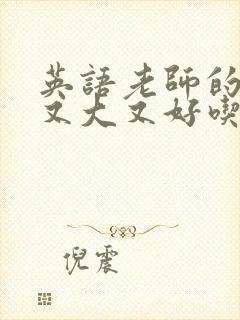 英語老師的
又大又好喫
倪震